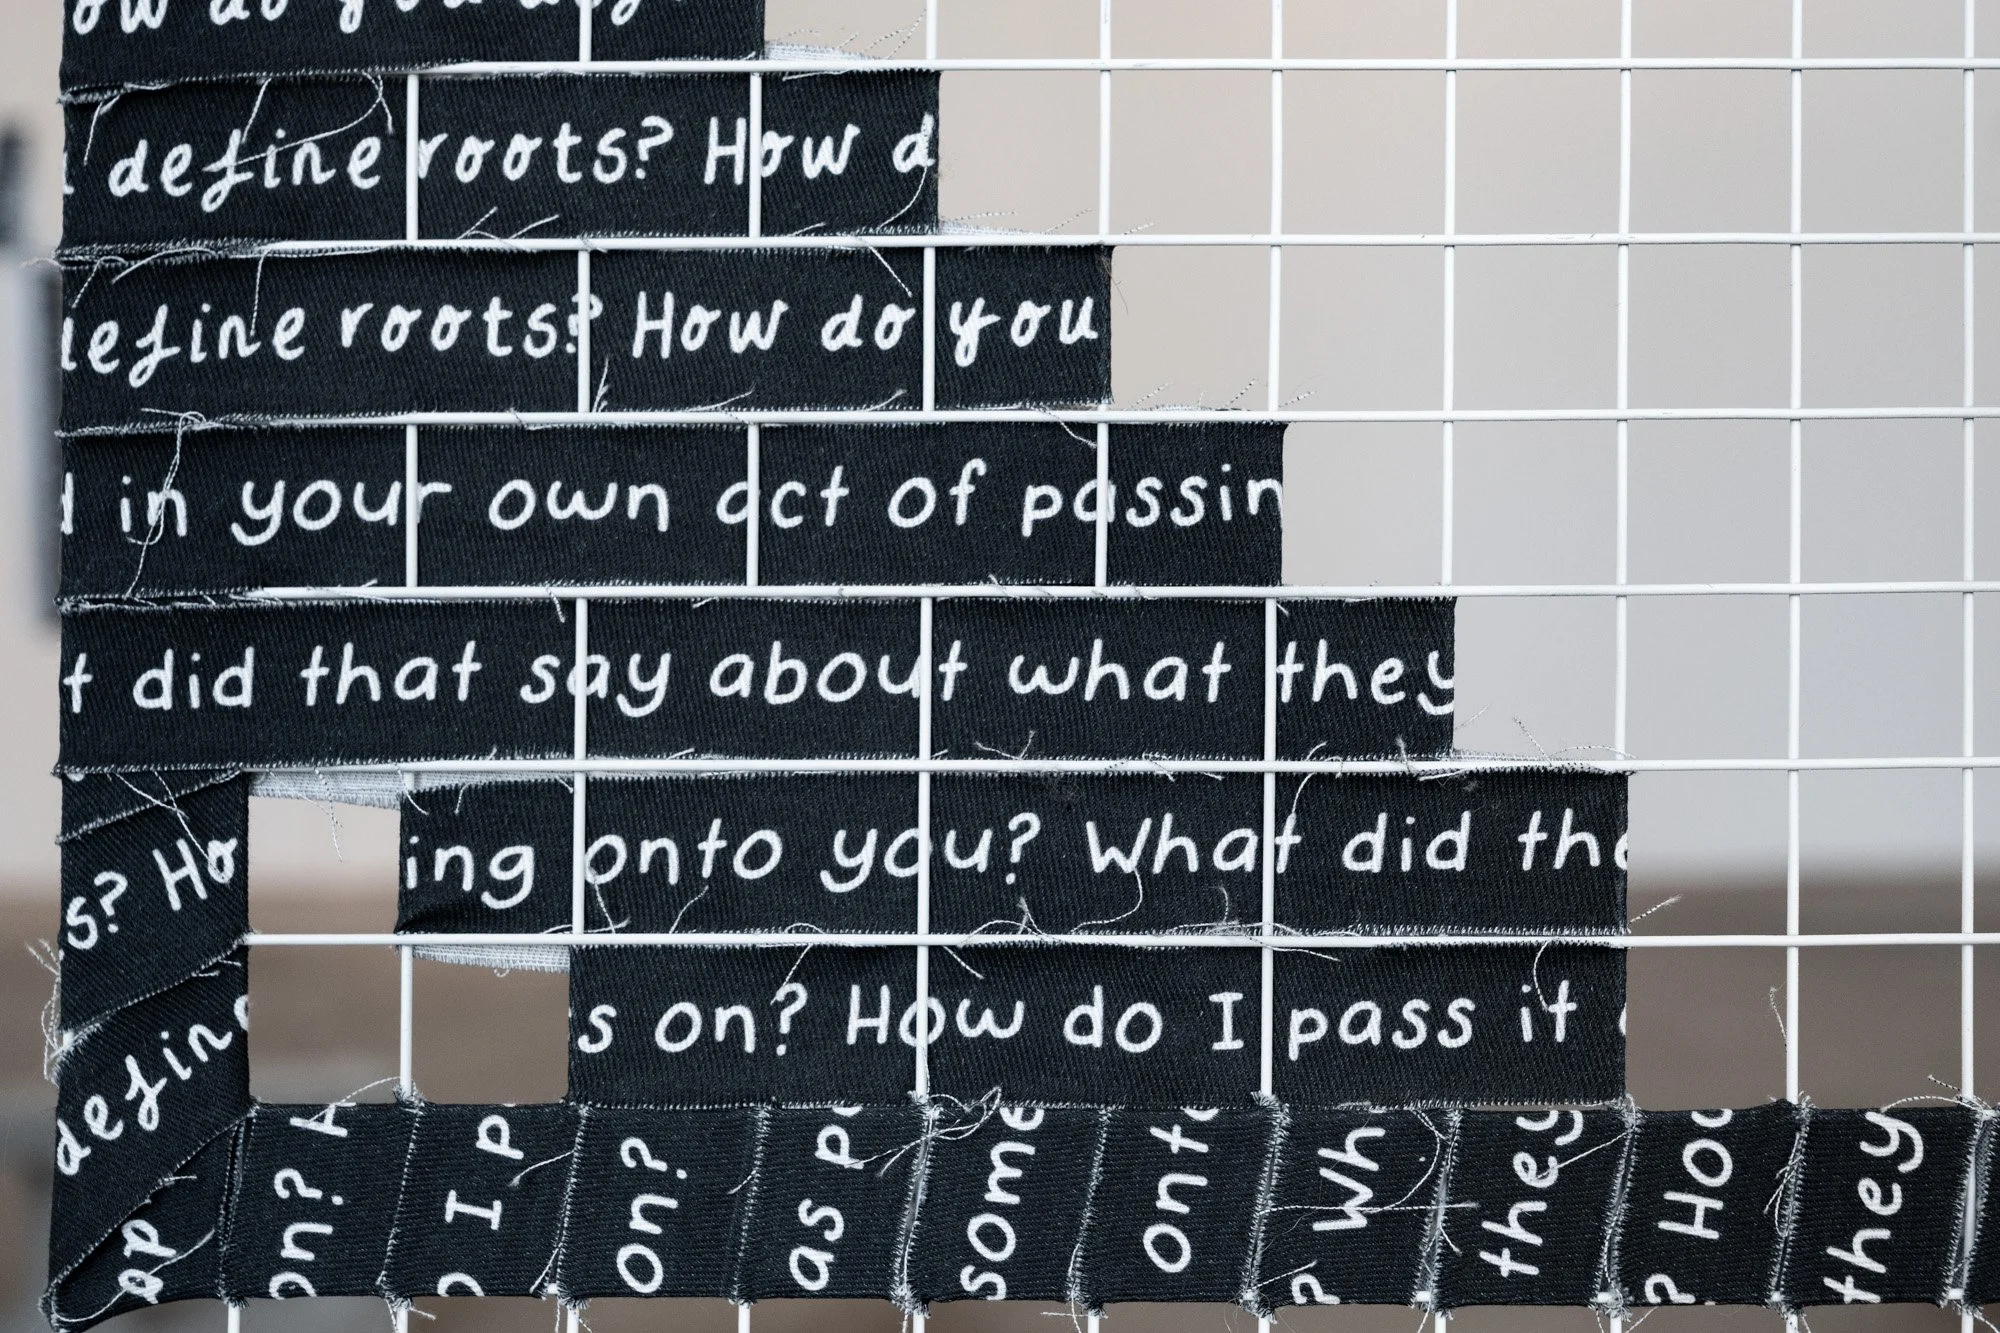 ow do you
define roots? How d
define roots? How do you
in your own act of passin
t did that say about what they
ing onto you? What did tha
s? Ho
s on? How do I pass it
define
on? I p on? as some onto Wh they Hou they